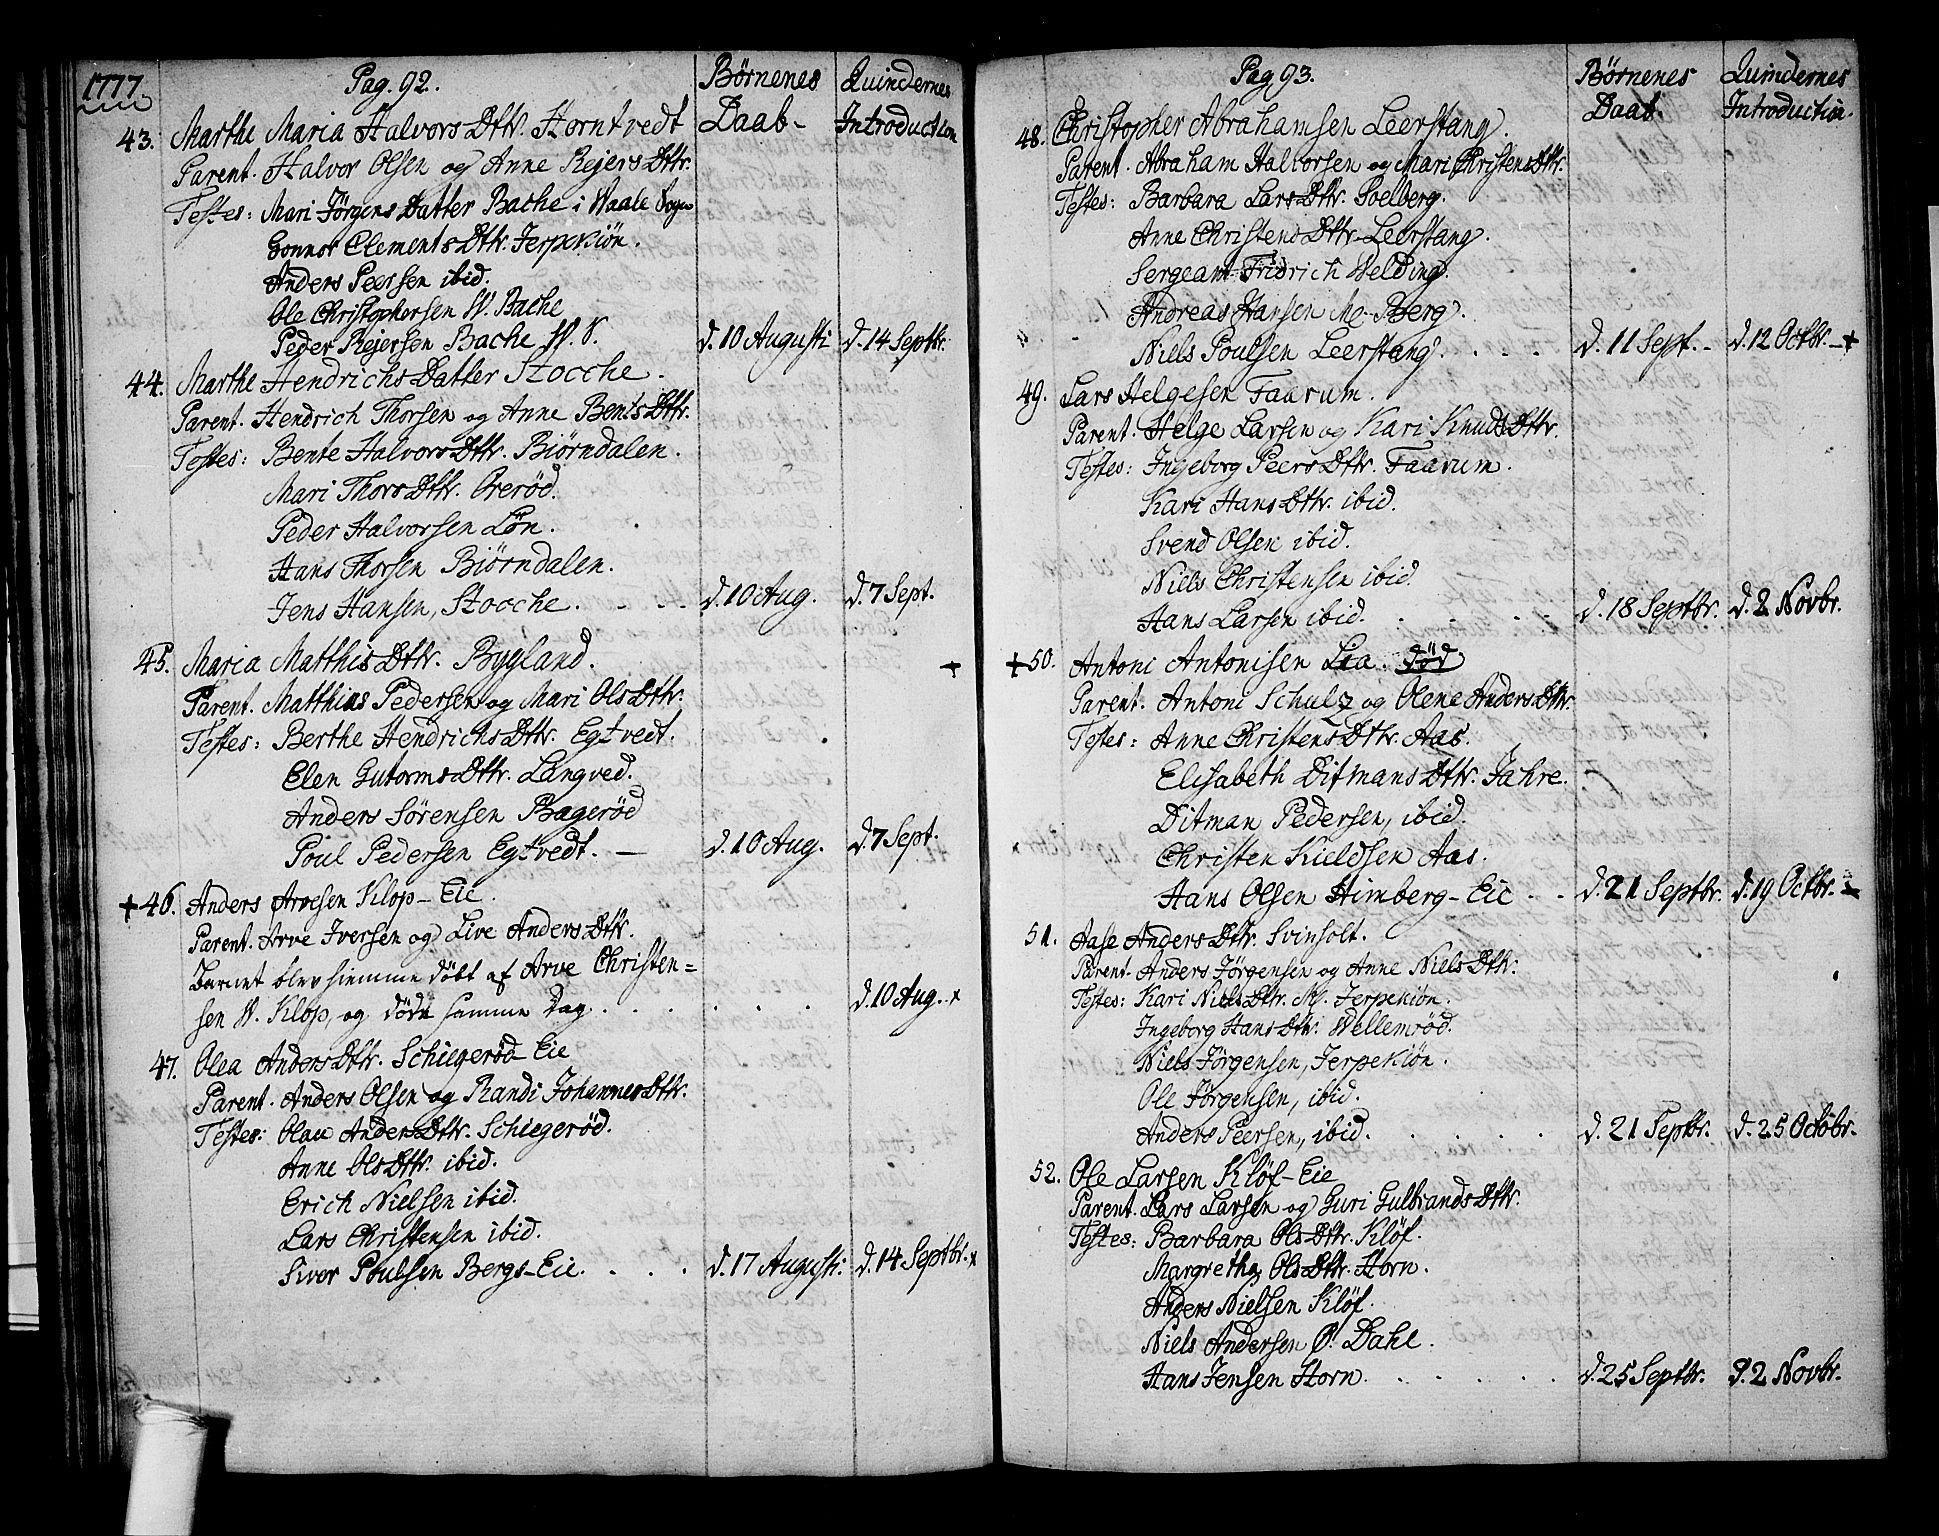 1777.
Pag. 92.
Børnenes Daab-
Quindernes Introduction
43. Marthe Maria Halvors Dttr. Horntvedt
Parent. Halvor Olsen og Anne Rejers Dttr.
Testes: Mari Jörgens Datter Bache i Waale Sogn
Gonnor Clements Dttr. Jerpekiön.
Anders Peersen ibid.
Ole Christophersen W. Bache
Peder Rejersen Bache W. S. d. 10 Augusti d. 14 Septbr.
44. Marthe Hendrichs Datter Stocche.
Parent. Hendrich Thorsen og Anne Bents Dttr.
Testes: Bente Halvors Dttr. Biörndalen.
Mari Thors Dttr. Oreröd.
Peder Halvorsen Lön.
Hans Thorsen Biörndalen.
Jens Hansen, Stocche. d. 10 Aug. d. 7 Sept.
45. Maria Matthis Dttr. Bygland. +
Parent. Matthias Pedersen og Mari Ols Dttr.
Testes: Berthe Hendrichs Dttr. Egtvedt.
Elen Gutorms Dttr. Langved.
Anders Sörensen Bageröd
Poul Pedersen Egtvedt. — d. 10 Aug. d. 7 Sept.
+ 46. Anders Arvesen Klop-Eie.
Parent. Arve Iversen og Live Anders Dttr.
Barnet blev hiemme döbt af Arve Christen=
sen W. Klop, og döde samme Dag. d. 10 Aug. x
47. Olea Anders Dttr. Schiegeröd-Eie
Parent. Anders Olsen og Randi Johannes Dttr.
Testes: Olau Anders Dttr. Schiegeröd.
Anne Ols Dttr. ibid.
Erich Nielsen ibid.
Lars Christensen ibid.
Siver Poulsen Bergs-Eie. d. 17 Augusti. d. 14 Septbr. x
Pag 93.
Börnenes Daab.
Quindernes Introduction.
48. Christopher Abrahamsen Leerstang.
Parent. Abraham Halvorsen og Mari Christens Dttr.
Testes: Barbara Lars Dttr. Soelberg.
Anne Christens Dttr. Leerstang.
Sergeant Fridrich Welding.
Andreas Hansen M. Berg.
Niels Poulsen Leerstang. d. 11 Sept. - d. 12 Octbr. - +
49. Lars Helgesen Faarum.
Parent. Helge Larsen og Kari Knuds Dttr.
Testes: Ingeborg Peers Dttr. Faarum.
Kari Hans Dttr. ibid.
Svend Olsen ibid.
Niels Christensen ibid.
Hans Larsen ibid. d. 18 Septbr. d. 2 Novbr.
+ 50. Antoni Antonisen Lia. död
Parent. Antoni Schulz og Olene Anders Dttr.
Testes: Anne Christens Dttr. Aas.
Elisabeth Ditmans Dttr. Jahre.
Ditman Pedersen, ibid.
Christen Kieldsen Aas.
Hans Olsen Himberg-Eie d. 21 Septbr. d. 19 Octbr.
51. Aase Anders Dttr. Svinholt.
Parent. Anders Jörgensen og Anne Niels Dttr.
Testes: Kari Niels Dttr. M. Jerpekiön.
Ingeborg Hans Dttr. Wellemröd.
Niels Jörgensen, Jerpekiön.
Ole Jörgensen, ibid.
Anders Peersen, ibid. d. 21 Septbr. d. 25 Octobr.
52. Ole Larsen Klöf-Eie
Parent. Lars Larsen og Guri Gulbrands Dttr.
Testes: Barbara Ols Dttr. Klöf.
Margrethe Ols Dttr. Horn.
Anders Nielsen Klöf.
Niels Andersen Ø. Dahl.
Hans Jensen Horn. d. 25 Septbr. d. 2 Novbr.